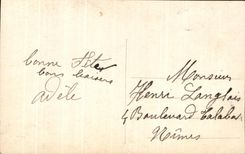 bonne fête
bons baisers
adèle
Monsieur
Henri Langlois
4 Boulevard Talabot
Nîmes